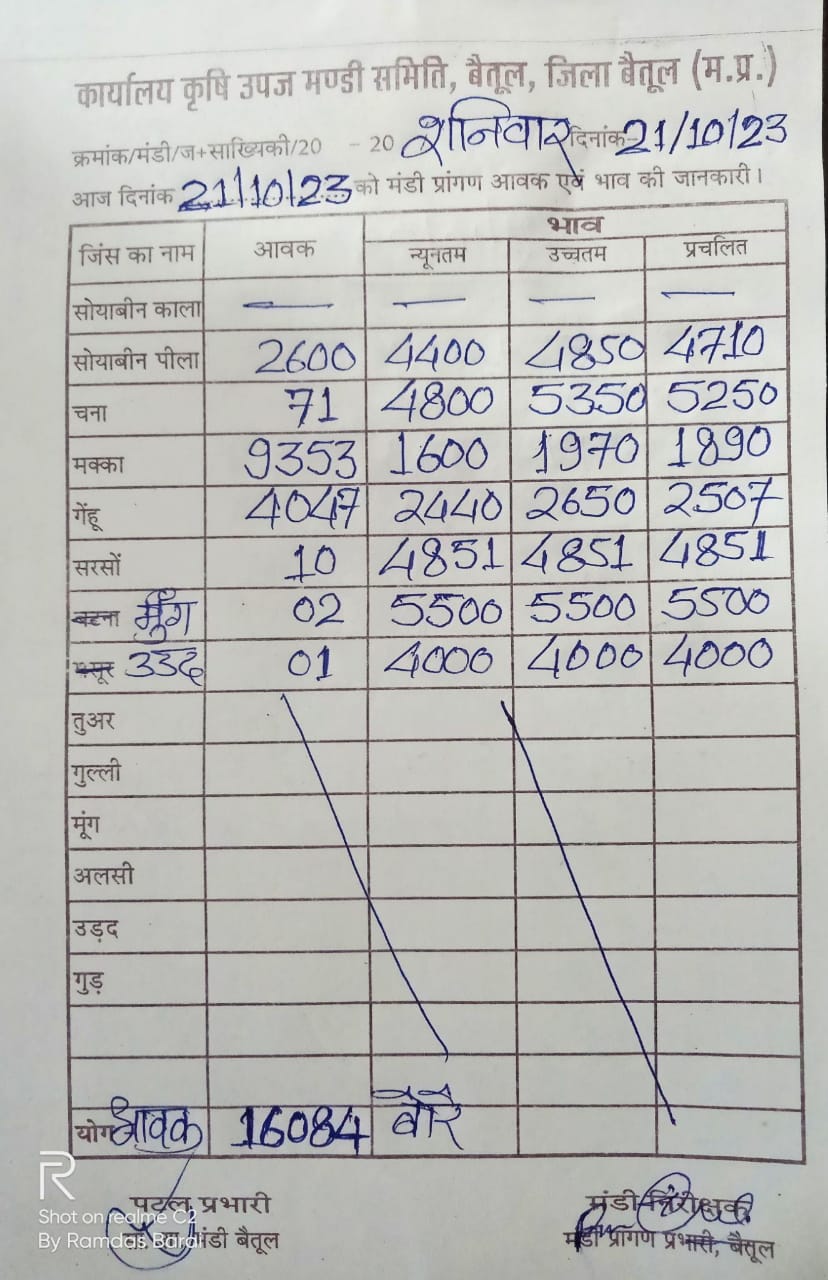 कार्यालय कृषि उपज मण्डी समिति, बैतूल, जिला बैतूल (म.प्र.)
क्रमांक/मंडी/ज+साख्यिकी/20 - 20 शनिवार दिनांक 21/10/23
आज दिनांक 21/10/23 को मंडी प्रांगण आवक एवं भाव की जानकारी।
भाव
जिंस का नाम आवक न्यूनतम उच्चतम प्रचलित
सोयाबीन काला — — — —
सोयाबीन पीला 2600 4400 4850 4710
चना 71 4800 5350 5250
मक्का 9353 1600 1970 1890
गेंहू 4047 2440 2650 2507
सरसों 10 4851 4851 4851
बटना मुंग 02 5500 5500 5500
मसूर उडद 01 4000 4000 4000
तुअर
गुल्ली
मूंग
अलसी
उड़द
गुड़
योग आवक 16084 बोरे
पटल प्रभारी मंडी निरीक्षक
मंडी बैतूल मंडी प्राँगण प्रभारी, बैतूल
R
Shot on realme C2
By Ramdas Barai